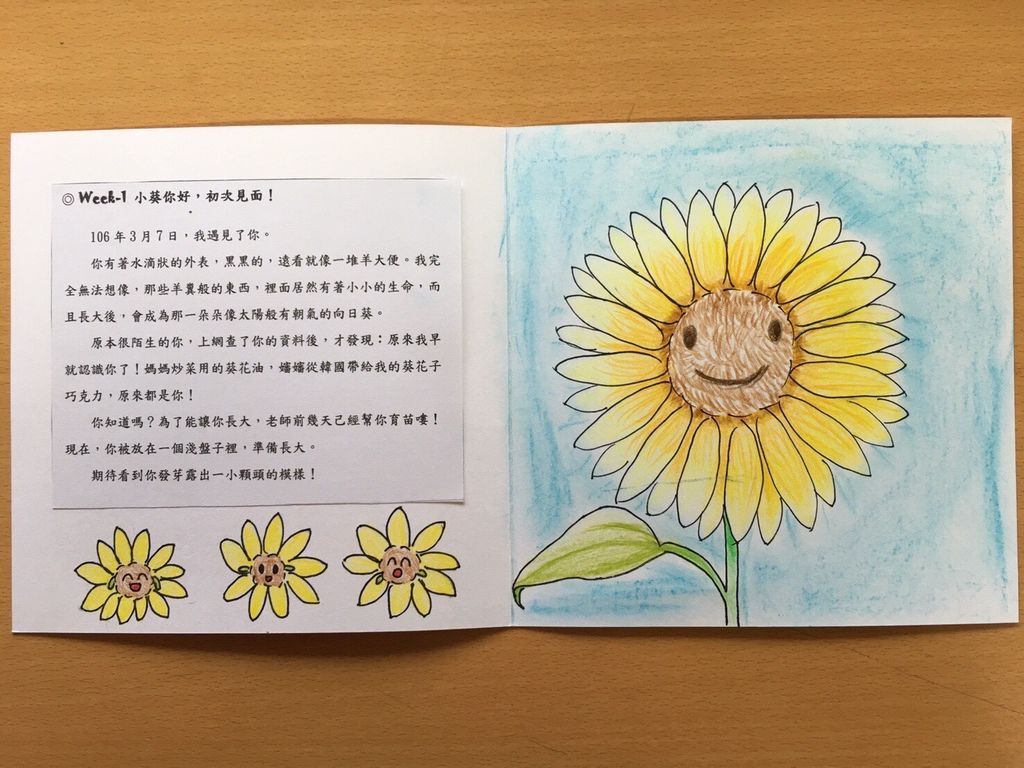 ◎Week-1 小葵你好，初次見面！
106 年 3 月 7 日，我遇見了你。
你有著水滴狀的外表，黑黑的，遠看就像一堆羊大便。我完
全無法想像，那些羊糞般的東西，裡面居然有著小小的生命，而
且長大後，會成為那一朵朵像太陽般有朝氣的向日葵。
原本很陌生的你，上網查了你的資料後，才發現：原來我早
就認識你了！媽媽炒菜用的葵花油，嬸嬸從韓國帶給我的葵花子
巧克力，原來都是你！
你知道嗎？為了能讓你長大，老師前幾天已經幫你育苗嘍！
現在，你被放在一個淺盤子裡，準備長大。
期待看到你發芽露出一小顆頭的模樣！